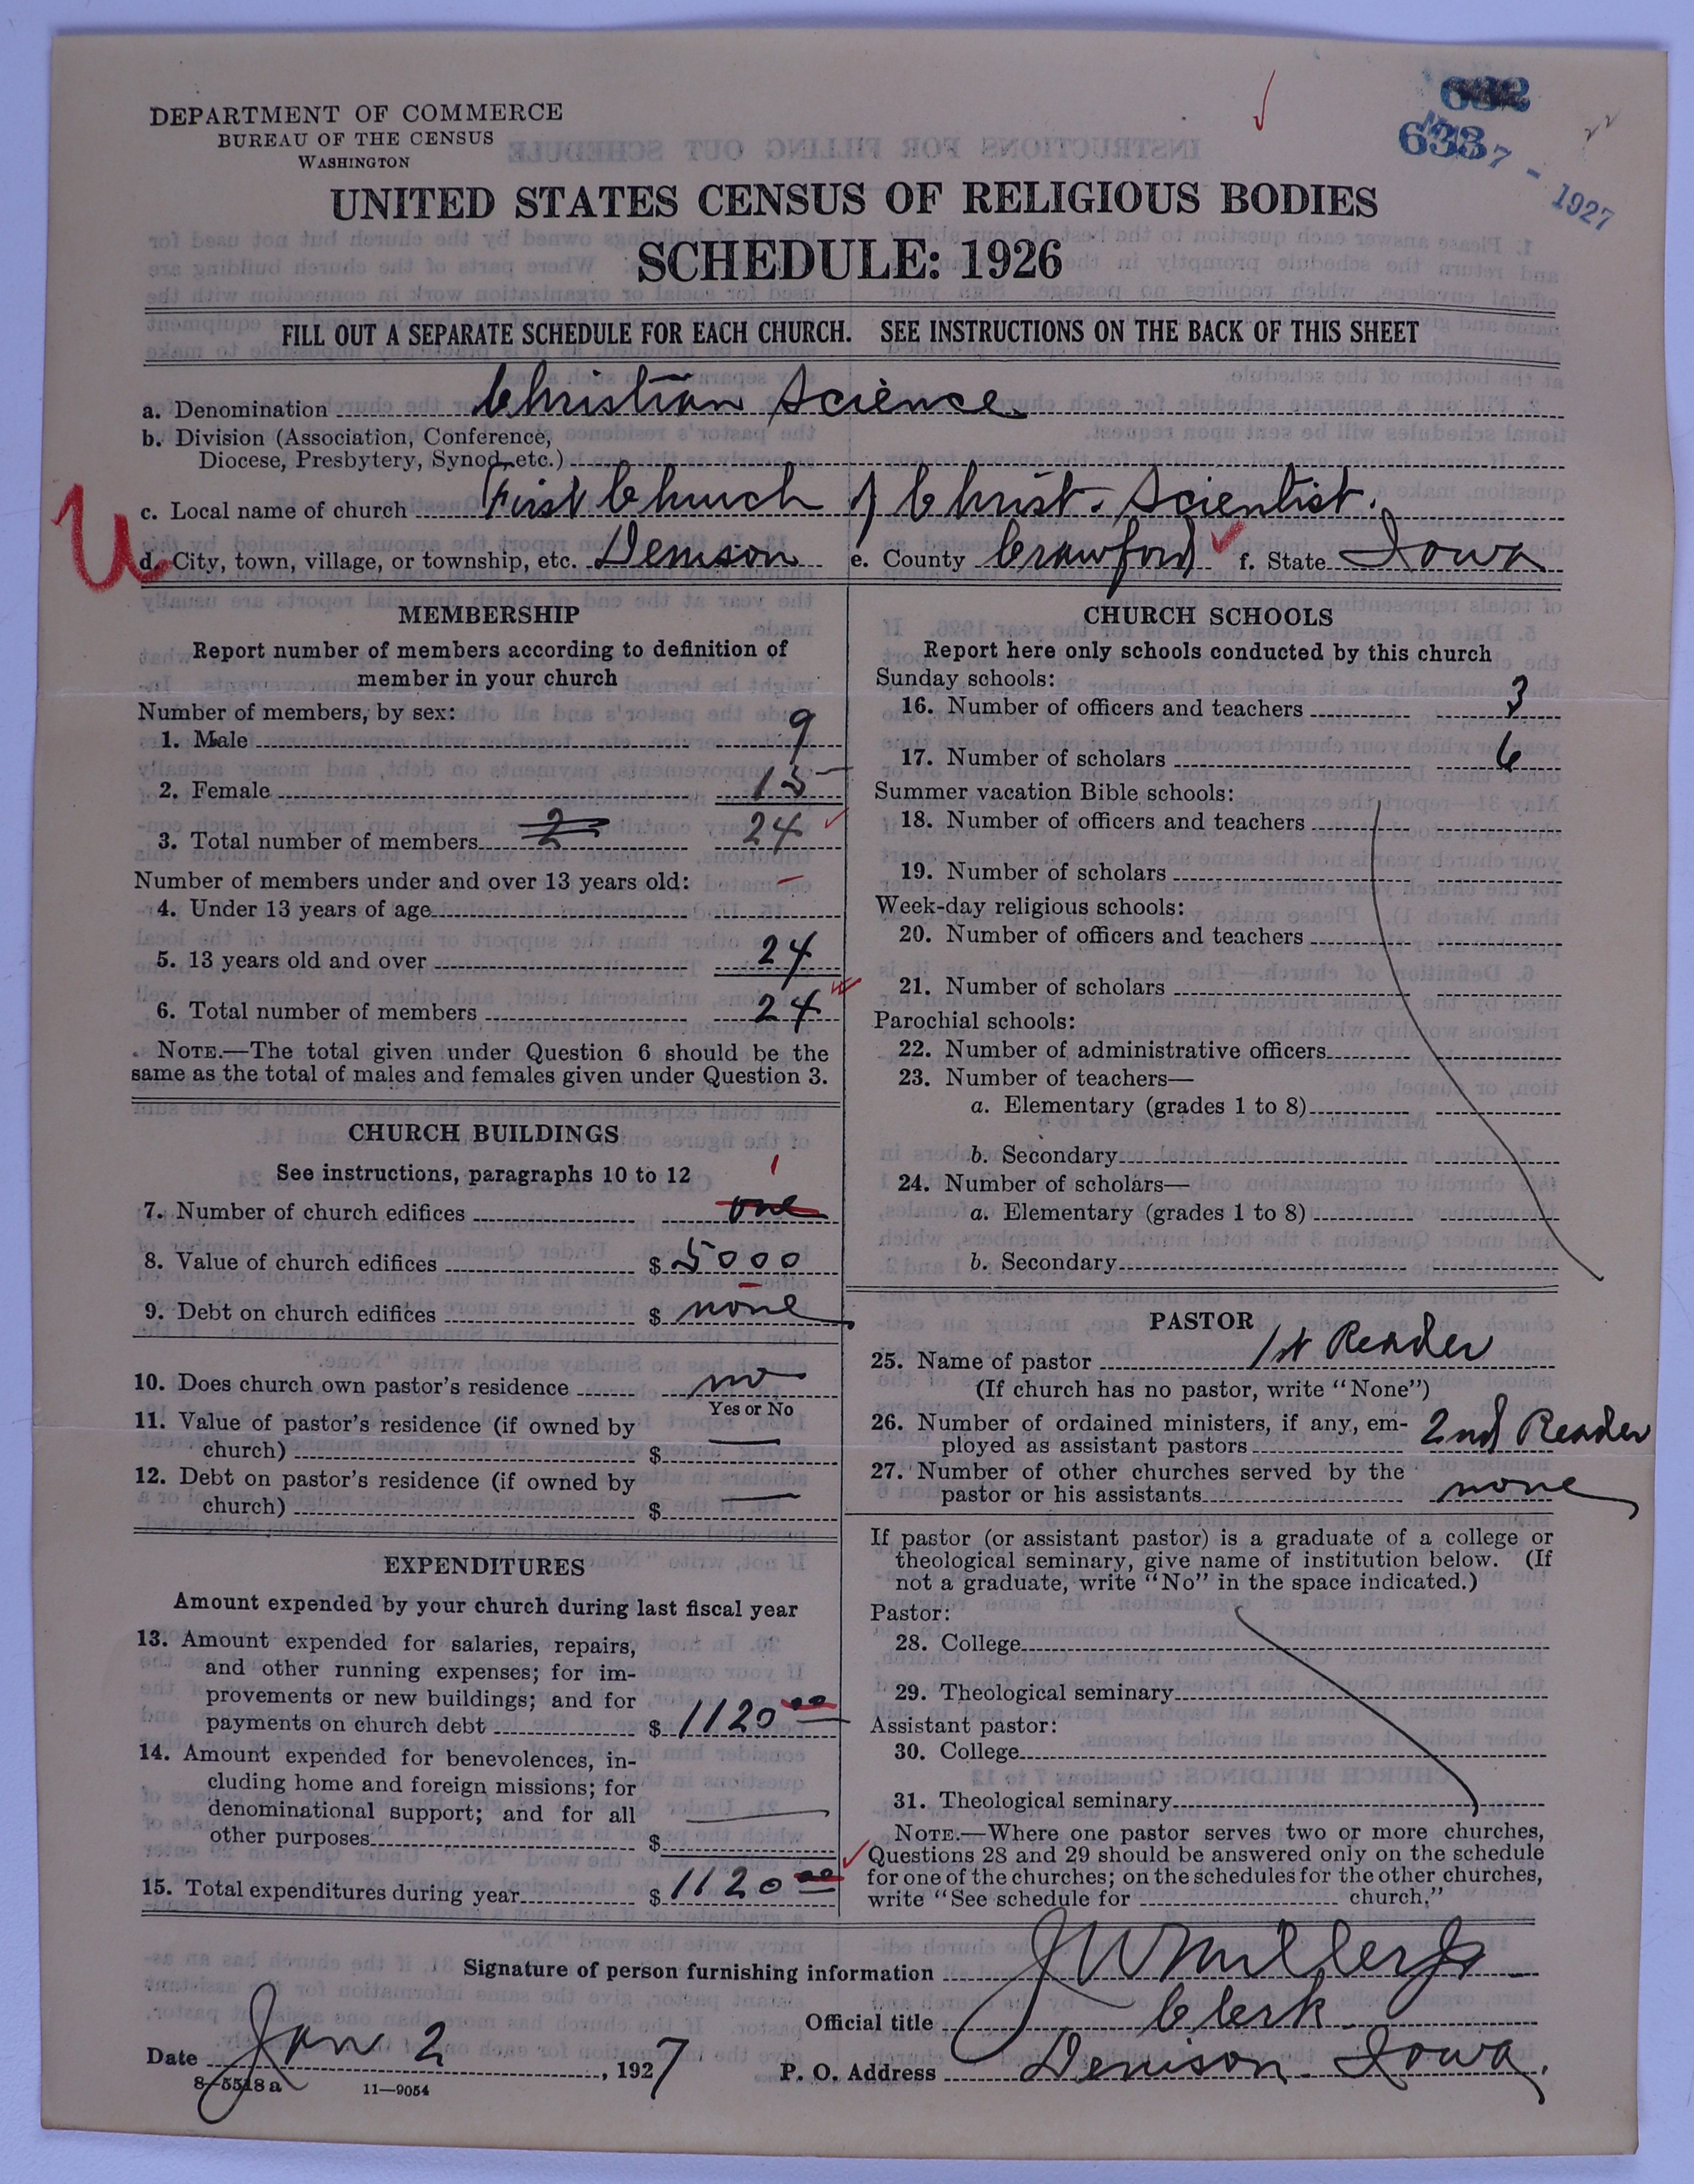 DEPARTMENT OF COMMERCE
BUREAU OF THE CENSUS
WASHINGTON
633
7 - 1927
UNITED STATES CENSUS OF RELIGIOUS BODIES
SCHEDULE: 1926
FILL OUT A SEPARATE SCHEDULE FOR EACH CHURCH. SEE INSTRUCTIONS ON THE BACK OF THIS SHEET
a. Denomination Christian Science
b. Division (Association, Conference,
Diocese, Presbytery, Synod, etc.)
c. Local name of church First Church of Christ. Scientist.
U
d. City, town, village, or township, etc. Denison e. County Crawford f. State Iowa
MEMBERSHIP
Report number of members according to definition of
member in your church
Number of members, by sex:
1. Male 9
2. Female 15
3. Total number of members 2 24
Number of members under and over 13 years old: –
4. Under 13 years of age
5. 13 years old and over 24
6. Total number of members 24
NOTE.—The total given under Question 6 should be the
same as the total of males and females given under Question 3.
CHURCH BUILDINGS
See instructions, paragraphs 10 to 12 1
7. Number of church edifices one
8. Value of church edifices $ 5000
9. Debt on church edifices $ none
10. Does church own pastor's residence no
Yes or No
11. Value of pastor's residence (if owned by
church) $ —
12. Debt on pastor's residence (if owned by
church) $ —
EXPENDITURES
Amount expended by your church during last fiscal year
13. Amount expended for salaries, repairs,
and other running expenses; for im-
provements or new buildings; and for
payments on church debt $ 1120 00
14. Amount expended for benevolences, in-
cluding home and foreign missions; for
denominational support; and for all
other purposes $ —
15. Total expenditures during year $ 1120 00
CHURCH SCHOOLS
Report here only schools conducted by this church
Sunday schools:
16. Number of officers and teachers 3
17. Number of scholars 6
Summer vacation Bible schools:
18. Number of officers and teachers
19. Number of scholars
Week-day religious schools:
20. Number of officers and teachers
21. Number of scholars
Parochial schools:
22. Number of administrative officers
23. Number of teachers—
a. Elementary (grades 1 to 8)
b. Secondary
24. Number of scholars—
a. Elementary (grades 1 to 8)
b. Secondary
PASTOR
25. Name of pastor 1st Reader
(If church has no pastor, write "None")
26. Number of ordained ministers, if any, em-
ployed as assistant pastors 2nd Reader
27. Number of other churches served by the
pastor or his assistants none
If pastor (or assistant pastor) is a graduate of a college or
theological seminary, give name of institution below. (If
not a graduate, write "No" in the space indicated.)
Pastor:
28. College
29. Theological seminary
Assistant pastor:
30. College
31. Theological seminary
NOTE.—Where one pastor serves two or more churches,
Questions 28 and 29 should be answered only on the schedule
for one of the churches; on the schedules for the other churches,
write "See schedule for church,"
Signature of person furnishing information J W Miller Jr
Official title Clerk
Date Jan 2, 1927 P. O. Address Denison. Iowa.
8-5518 a 11—9054